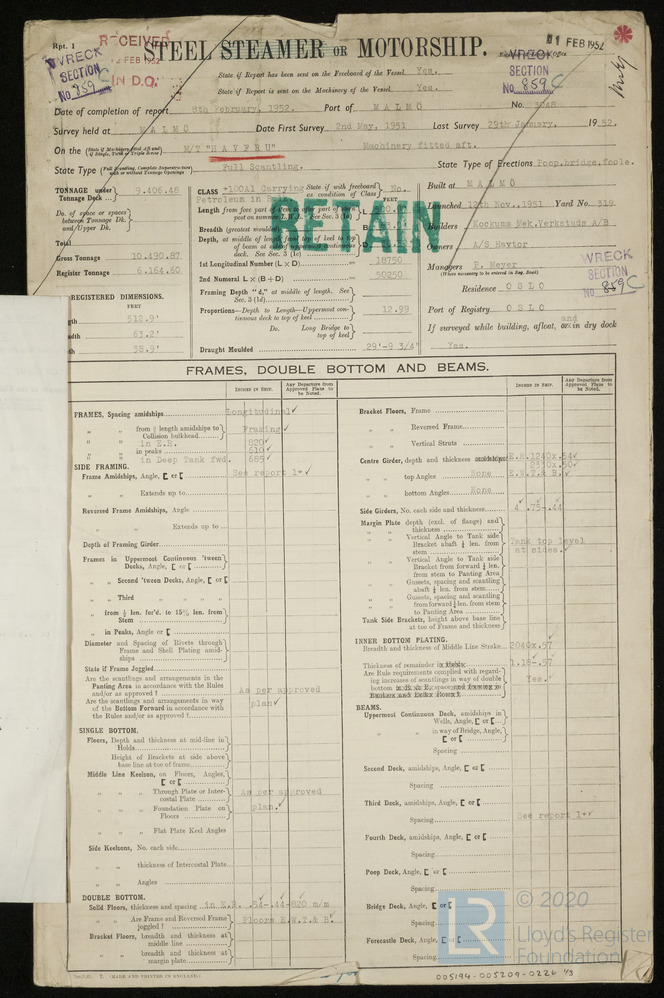 Rpt. 1
RECEIVED
FEB 1952
IN D.O.
WRECK
SECTION
No 859C
STEEL STEAMER OR MOTORSHIP.
1 FEB 1952
WRECK
SECTION
No. 859C
State if Report has been sent on the Freeboard of the Vessel Yes.
State if Report is sent on the Machinery of the Vessel Yes.
Date of completion of report 8th February, 1952. Port of MALMÖ No. 3048
Survey held at MALMÖ Date First Survey 2nd May, 1951 Last Survey 29th January, 1952.
On the M/T "HAVFRU" Machinery fitted aft.
State Type Full Scantling. State Type of Erections Poop,bridge,fcsle.
TONNAGE under Tonnage Deck 9.406.48
Do. of space or spaces between Tonnage Dk. and Upper Dk.
Total
Gross Tonnage 10.490.87
Register Tonnage 6.164.60
REGISTERED DIMENSIONS.
FEET
512.9'
63.2'
CLASS +100A1 Carrying Petroleum in
State if with freeboard as condition of Class No.
FEET
1st Longitudinal Number (L × D) 18750
2nd Numeral L × (B + D) 50250
Framing Depth "d," at middle of length. See Sec. 3 (1d)
Proportions—Depth to Length—Uppermost continuous deck to top of keel 12.99
Do. Long Bridge to top of keel
Draught Moulded 29'-9 3/4"
RETAIN
Built at MALMÖ
Launched 12th Nov. 1951 Yard No. 319
Builders Kockums Mek.Verkstads A/B
Owners A/S Havtor
Managers P. Meyer
(Where necessary to be entered in Reg. Book)
Residence OSLO
WRECK
SECTION
No 859C
Port of Registry OSLO
and
If surveyed while building, afloat, or in dry dock
Yes.
FRAMES, DOUBLE BOTTOM AND BEAMS.
INCHES IN SHIP.
Any Departure from Approved Plans to be Noted.
FRAMES, Spacing amidships Longitudinal ✓
" " from ⅗ length amidships to Collision bulkhead Framing ✓
" " in E.R. 820 ✓
" " in peaks 610 ✓
" " in Deep Tank fwd. 685 ✓
SIDE FRAMING.
Frame Amidships, Angle, [ or [ See report 1* ✓
" " Extends up to
Reversed Frame Amidships, Angle
" " Extends up to
Depth of Framing Girder
Frames in Uppermost Continuous 'tween Decks, Angle, [ or [
" " Second 'tween Decks, Angle, [ or [
" " Third " " " "
" " from ⅗ len. for'd. to 15% len. from Stem
" " in Peaks, Angle or [
Diameter and Spacing of Rivets through Frame and Shell Plating amidships
State if Frame Joggled
Are the scantlings and arrangements in the Panting Area in accordance with the Rules and/or as approved? As per approved
Are the scantlings and arrangements in way of the Bottom Forward in accordance with the Rules and/or as approved? plan ✓
SINGLE BOTTOM.
Floors, Depth and thickness at mid-line in Holds
Height of Brackets at side above base line at toe of frame
Middle Line Keelson, on Floors, Angles, [ or [
" " Through Plate or Intercostal Plate As per approved
" " Foundation Plate on Floors plan. ✓
" " Flat Plate Keel Angles
Side Keelsons, No. each side
" " thickness of Intercostal Plate
" " Angles
DOUBLE BOTTOM.
Solid Floors, thickness and spacing in E.R. .54-.44-820 m/m
" " Are Frame and Reversed Frame joggled? Floors E.W.T.& B.
Bracket Floors, breadth and thickness at middle line
" " breadth and thickness at margin plate
INCHES IN SHIP.
Any Departure from Approved Plans to be Noted.
Bracket Floors, Frame
" " Reversed Frame
" " Vertical Struts
Centre Girder, depth and thickness amidships E.R.1240x.54 ✓
" " top Angles None E.W.T.& B. ✓
" " bottom Angles None
Side Girders, No. each side and thickness 4 .75-.44
Margin Plate depth (excl. of flange) and thickness
" " Vertical Angle to Tank side Bracket abaft ¼ len. from stem Tank top level at sides.
" " Vertical Angle to Tank side Bracket from forward ¼ len. from stem to Panting Area
" " Gussets, spacing and scantling abaft ¼ len. from stem
" " Gussets, spacing and scantling from forward ¼ len. from stem to Panting Area
Tank Side Brackets, height above base line at toe of Frame and thickness
INNER BOTTOM PLATING.
Breadth and thickness of Middle Line Strake 2040x.57
Thickness of remainder 1.18-.57
Are Rule requirements complied with regarding increases of scantlings in way of double bottom Yes. ✓
BEAMS.
Uppermost Continuous Deck, amidships in Wells, Angle, [ or [
" " in way of Bridge, Angle, [ or [
Spacing
Second Deck, amidships, Angle, [ or [
Spacing
Third Deck, amidships, Angle, [ or [
Spacing See report 1* ✓
Fourth Deck, amidships, Angle, [ or [
Spacing
Poop Deck, Angle, [ or [
Spacing
Bridge Deck, Angle, [ or [
Spacing
Forecastle Deck, Angle, [ or [
Spacing
(MADE AND PRINTED IN ENGLAND.)
LR
© 2020
Lloyd's Register
Foundation
005194-005209-0226 1/3